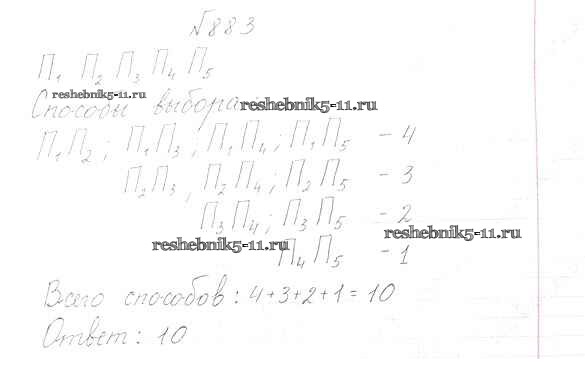 №883
П₁ П₂ П₃ П₄ П₅
reshebnik5-11.ru
Способы выбора:
reshebnik5-11.ru
П₁П₂; П₁П₃; П₁П₄; П₁П₅ - 4
П₂П₃, П₂П₄; П₂П₅ - 3
П₃П₄; П₃П₅ - 2
reshebnik5-11.ru
reshebnik5-11.ru
П₄П₅ - 1
Всего способов: 4+3+2+1=10
Ответ: 10